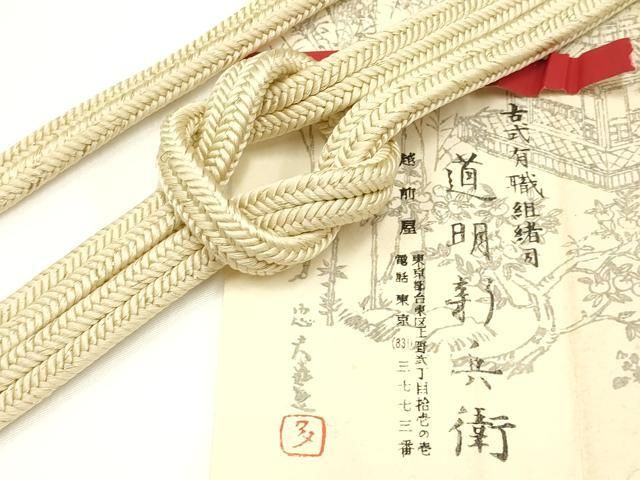 古式有職組緒司
道明新兵衛
越前屋
東京都台東区上野弐丁目拾壱の壱
電話東京(83)三七七三番